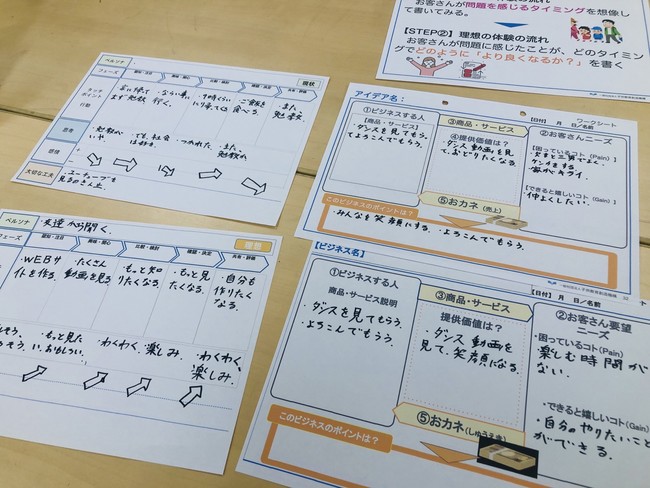 お客さんが問題を感じるタイミングを想像し
て書いてみる。
【STEP②】理想の体験の流れ
お客さんが問題に感じたことが、どのタイミン
グでどのように「より良くなるか？」を書く
ペルソナ
現状
フェーズ
認知・注目
興味・関心
比較・検討
確認・決定
共有・評価
タッチ
ポイント
行動
ならい事、
行く。
ご飯を
食べる。
また、
勉教。
思考
勉教か
いや。
つかれた。
また、
勉教か
感情
大切な工夫
ユーチューブを
ペルソナ
友達から聞く。
フェーズ
認知・注目
興味・関心
比較・検討
確認・決定
共有・評価
WEBサ
イトを作る。
たくさん
動画を見る
もっと知
りたくなる。
もっと見
たくなる。
自分も
作りたく
なる。
もっと見た
い。おもしろい。
わくわく
楽しみ。
わくわく
楽しみ。
アイデア名：
ワークシート
【日付】 月 日／名前
①ビジネスする人
【商品・サービス】
ダンスを見てもらう。
てよろこんでもらう。
③商品・サービス
④提供価値は？
ダンス動画を見
て、おどりたくなる。
②お客さんニーズ
【困っているコト(Pain)】
ケンカする
【できると嬉しいコト(Gain)】
仲よくしたい。
⑤おカネ（売上）
このビジネスのポイントは？
みんなを笑顔にする。よろこんでもらう。
【ビジネス名】
【日付】 月 日／名前
①ビジネスする人
商品・サービス説明
・ダンスを見てもらう。
・よろこんでもらう。
③商品・サービス
提供価値は？
・ダンス動画を
見て、笑顔になる。
②お客さん要望
ニーズ
・困っているコト(Pain)
楽しむ時間が
ない。
・できると嬉しいコト(Gain)
・自分のやりたいこと
ができる。
⑤おカネ（しゅうえき）
このビジネスのポイントは？